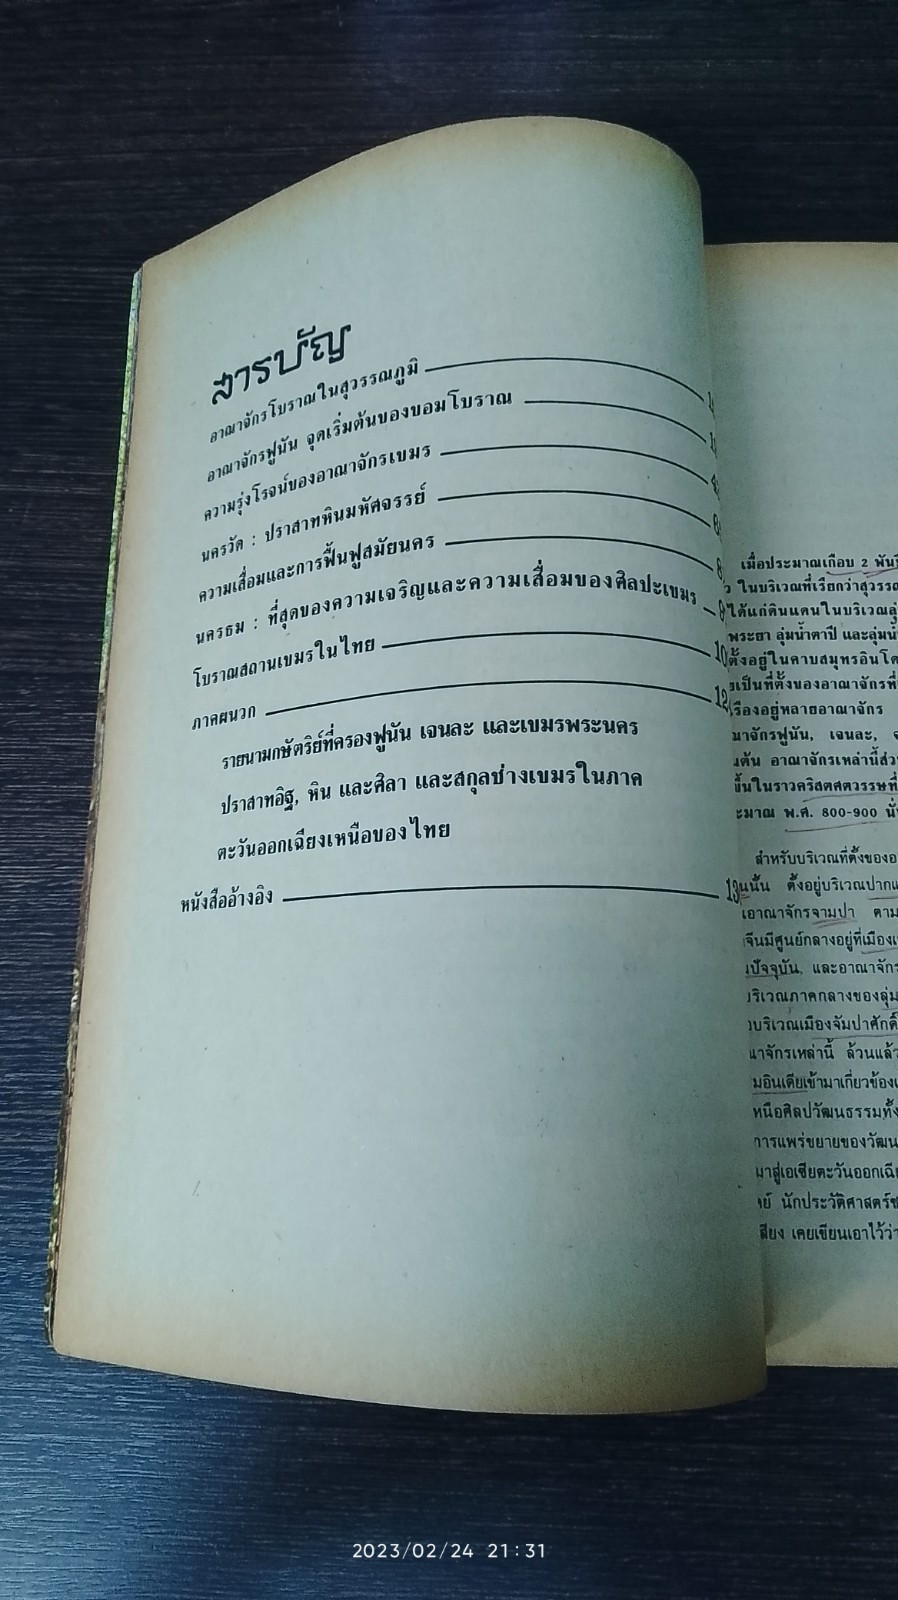 สารบัญ
อาณาจักรโบราณในสุวรรณภูมิ
อาณาจักรฟูนัน จุดเริ่มต้นของขอมโบราณ
ความรุ่งโรจน์ของอาณาจักรเขมร
นครวัด : ปราสาทหินมหัศจรรย์
ความเสื่อมและการฟื้นฟูสมัยนคร
นครธม : ที่สุดของความเจริญและความเสื่อมของศิลปะเขมร
โบราณสถานเขมรในไทย
ภาคผนวก
รายนามกษัตริย์ที่ครองฟูนัน เจนละ และเขมรพระนคร
ปราสาทอิฐ, หิน และศิลา และสกุลช่างเขมรในภาค
ตะวันออกเฉียงเหนือของไทย
หนังสืออ้างอิง
เมื่อประมาณเกือบ 2 พันปี
ในบริเวณที่เรียกว่า
ได้แก่ดินแดนในบริเวณ
พระยา ลุ่มน้ำตาปี และ
ตั้งอยู่ในคาบสมุทร
เป็นที่ตั้งของอาณาจักร
อยู่หลายอาณาจักร
ฟูนัน, เจนละ,
อาณาจักรเหล่านี้
ขึ้นในราวคริสตศตวรรษที่
พ.ศ. 800-900
สำหรับบริเวณที่ตั้งของ
นั้น ตั้งอยู่บริเวณ
อาณาจักรจามปา ตาม
จีนมีศูนย์กลางอยู่ที่เมือง
ปัจจุบัน, และอาณาจักร
บริเวณภาคกลางของ
บริเวณเมืองจัมปาศักดิ์
เหล่านี้ ล้วนแล้ว
อินเดียเข้ามาเกี่ยวข้อง
ศิลปวัฒนธรรมทั้ง
การแพร่ขยายของ
มาสู่เอเซียตะวันออก
นักประวัติศาสตร์
เคยเขียนเอาไว้ว่า
2023/02/24 21:31